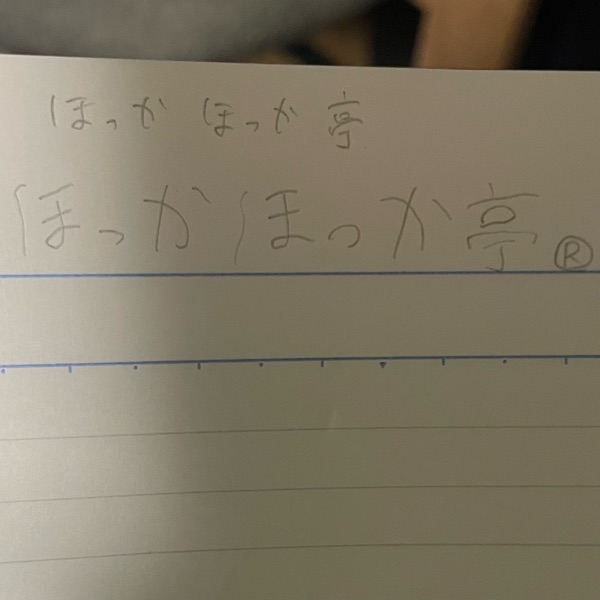 ほっか ほっか 亭
ほっかほっか亭®